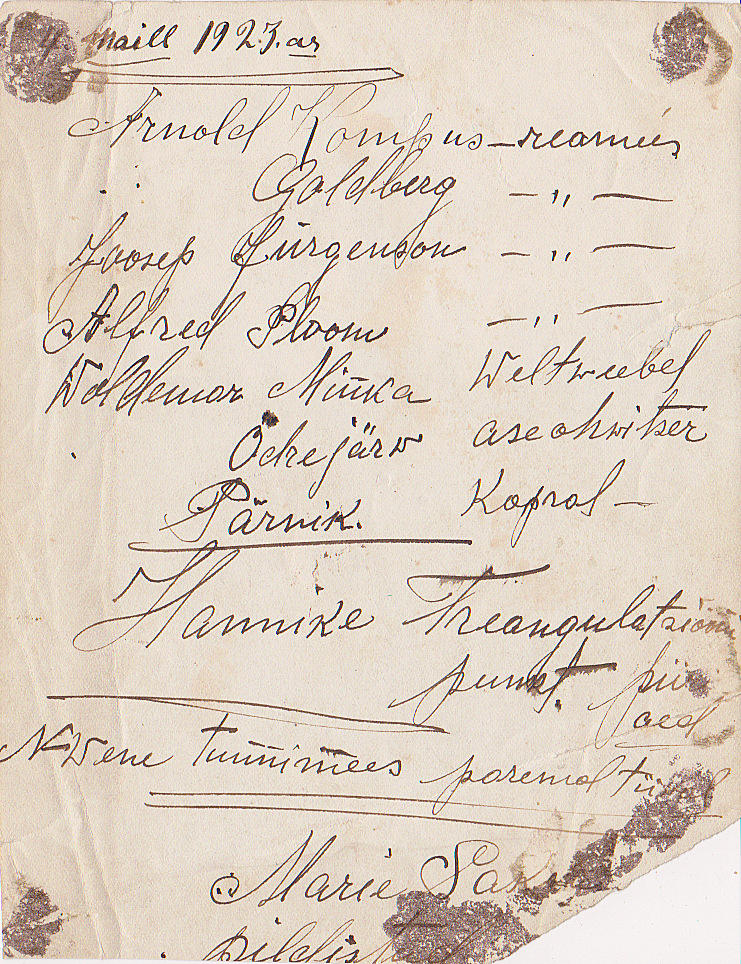 4. Maill 1923. as
Arnold Kompus – reamees
Goldberg – „ –
Joosep Jürgenson – „ –
Alfred Ploom – „ –
Woldemar Minka Weltweebel
Odrejärw aseohwitser
Pärnik. Kapral –
Hannike Treangulatsiooni
punkt.
aed
N-Wene tunnimees paremal
Marie